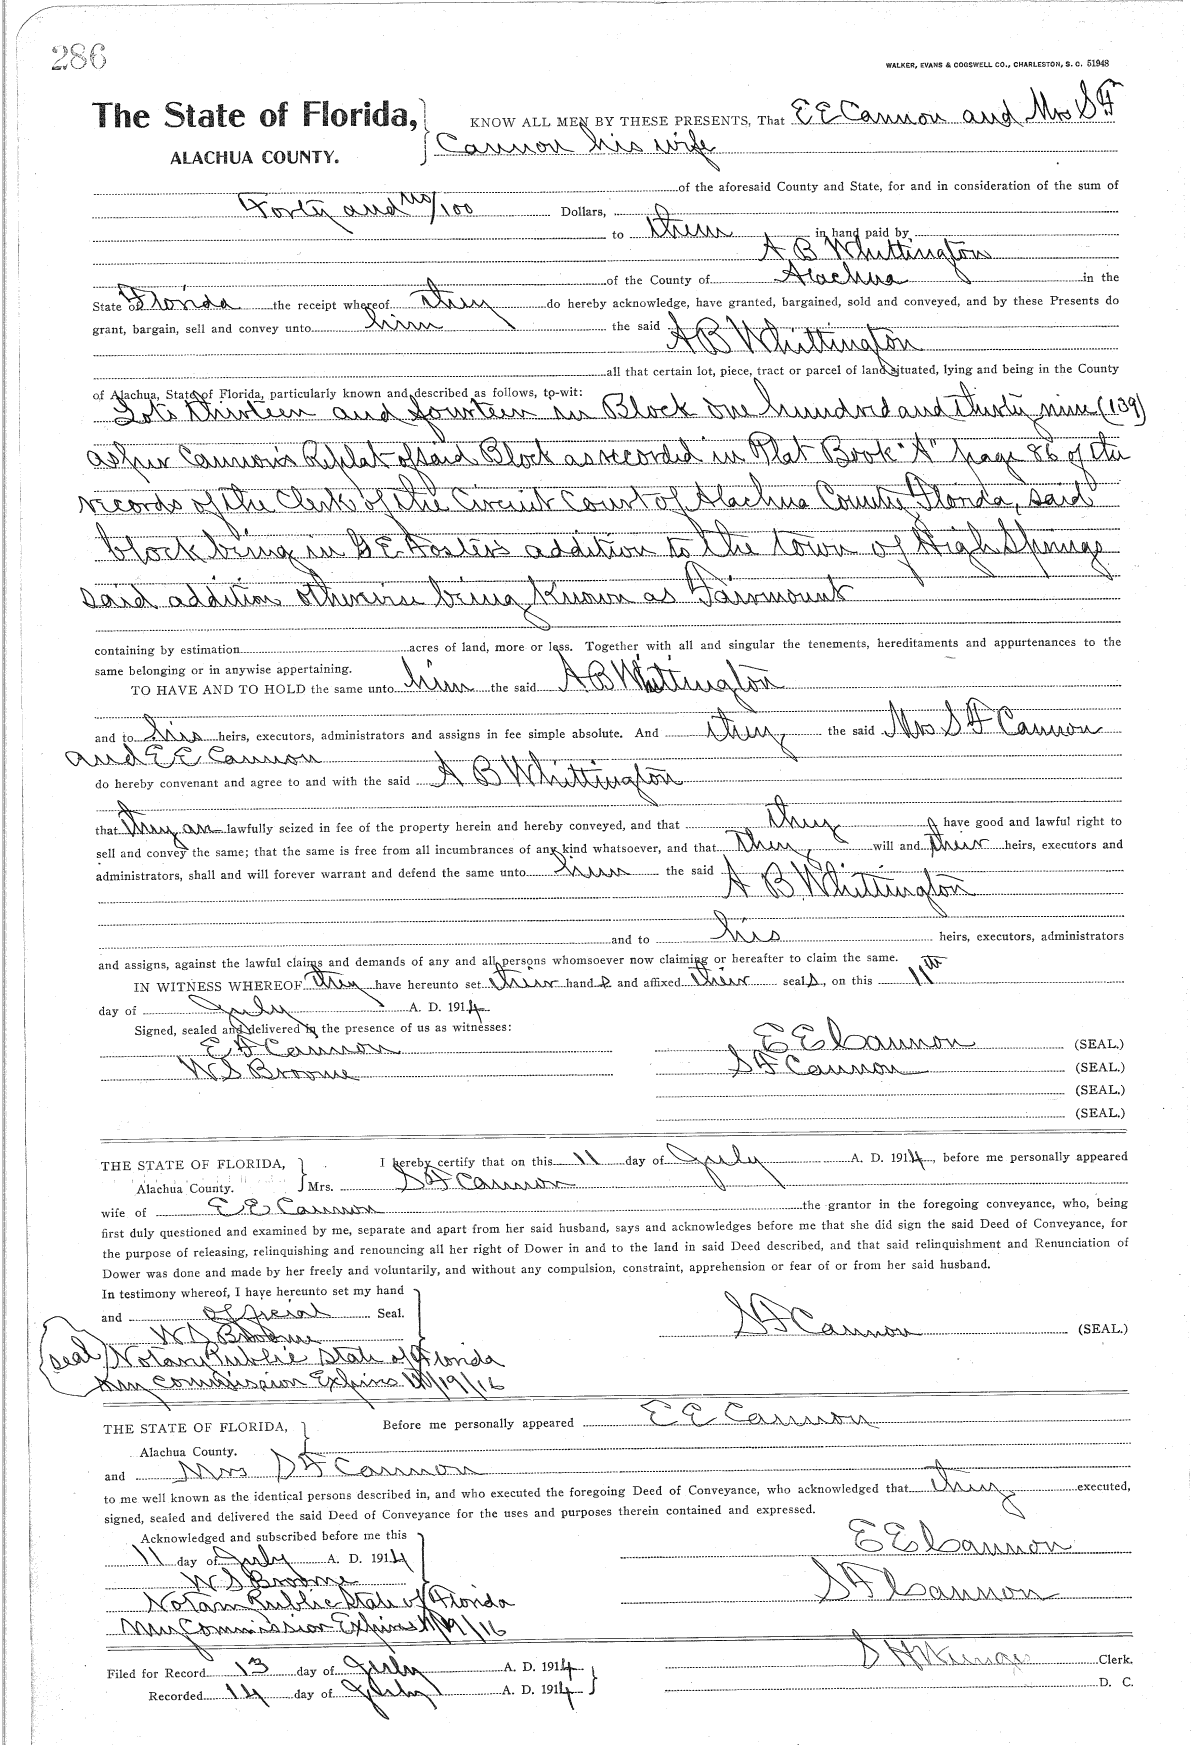 286
WALKER, EVANS & COGSWELL CO., CHARLESTON, S. C. 51948
The State of Florida,
ALACHUA COUNTY.
KNOW ALL MEN BY THESE PRESENTS, That E E Cannon and Mrs S F
Cannon his wife
of the aforesaid County and State, for and in consideration of the sum of
Forty and no/100 Dollars,
to them in hand paid by
A B Whittington
of the County of Alachua in the
State of Florida the receipt whereof they do hereby acknowledge, have granted, bargained, sold and conveyed, and by these Presents do
grant, bargain, sell and convey unto him the said A B Whittington
all that certain lot, piece, tract or parcel of land situated, lying and being in the County
of Alachua, State of Florida, particularly known and described as follows, to-wit:
Lots thirteen and fourteen in Block one hundred and thirty nine (139)
as per Cannon's Replat of said Block as recorded in Plat Book "A" page 86 of the
records of the Clerk of the Circuit Court of Alachua County Florida, said
block being in G E Foster's addition to the town of High Springs
said addition otherwise being known as Fairmount
containing by estimation acres of land, more or less. Together with all and singular the tenements, hereditaments and appurtenances to the
same belonging or in anywise appertaining.
TO HAVE AND TO HOLD the same unto him the said A B Whittington
and to his heirs, executors, administrators and assigns in fee simple absolute. And they the said Mrs S F Cannon
and E E Cannon
do hereby convenant and agree to and with the said A B Whittington
that they are lawfully seized in fee of the property herein and hereby conveyed, and that they have good and lawful right to
sell and convey the same; that the same is free from all incumbrances of any kind whatsoever, and that they will and their heirs, executors and
administrators, shall and will forever warrant and defend the same unto him the said A B Whittington
and to his heirs, executors, administrators
and assigns, against the lawful claims and demands of any and all persons whomsoever now claiming or hereafter to claim the same.
IN WITNESS WHEREOF they have hereunto set their hand s and affixed their seal s, on this 11th
day of July A. D. 1914
Signed, sealed and delivered in the presence of us as witnesses:
E F Cannon
W S Broome
E E Cannon (SEAL.)
S F Cannon (SEAL.)
(SEAL.)
(SEAL.)
THE STATE OF FLORIDA,
Alachua County.
I hereby certify that on this 11 day of July A. D. 1914, before me personally appeared
Mrs. S F Cannon
wife of E E Cannon the grantor in the foregoing conveyance, who, being
first duly questioned and examined by me, separate and apart from her said husband, says and acknowledges before me that she did sign the said Deed of Conveyance, for
the purpose of releasing, relinquishing and renouncing all her right of Dower in and to the land in said Deed described, and that said relinquishment and Renunciation of
Dower was done and made by her freely and voluntarily, and without any compulsion, constraint, apprehension or fear of or from her said husband.
In testimony whereof, I have hereunto set my hand
and official Seal.
W S Broome
(Seal) Notary Public State of Florida
My commission Expires 11/19/16
S F Cannon (SEAL.)
THE STATE OF FLORIDA,
Alachua County.
Before me personally appeared E E Cannon
and Mrs S F Cannon
to me well known as the identical persons described in, and who executed the foregoing Deed of Conveyance, who acknowledged that they executed,
signed, sealed and delivered the said Deed of Conveyance for the uses and purposes therein contained and expressed.
Acknowledged and subscribed before me this
11 day of July A. D. 1914
W S Broome
Notary Public State of Florida
My Commission Expires 11/19/16
E E Cannon
S F Cannon
Filed for Record 13 day of July A. D. 1914
Recorded 14 day of July A. D. 1914
Clerk.
D. C.